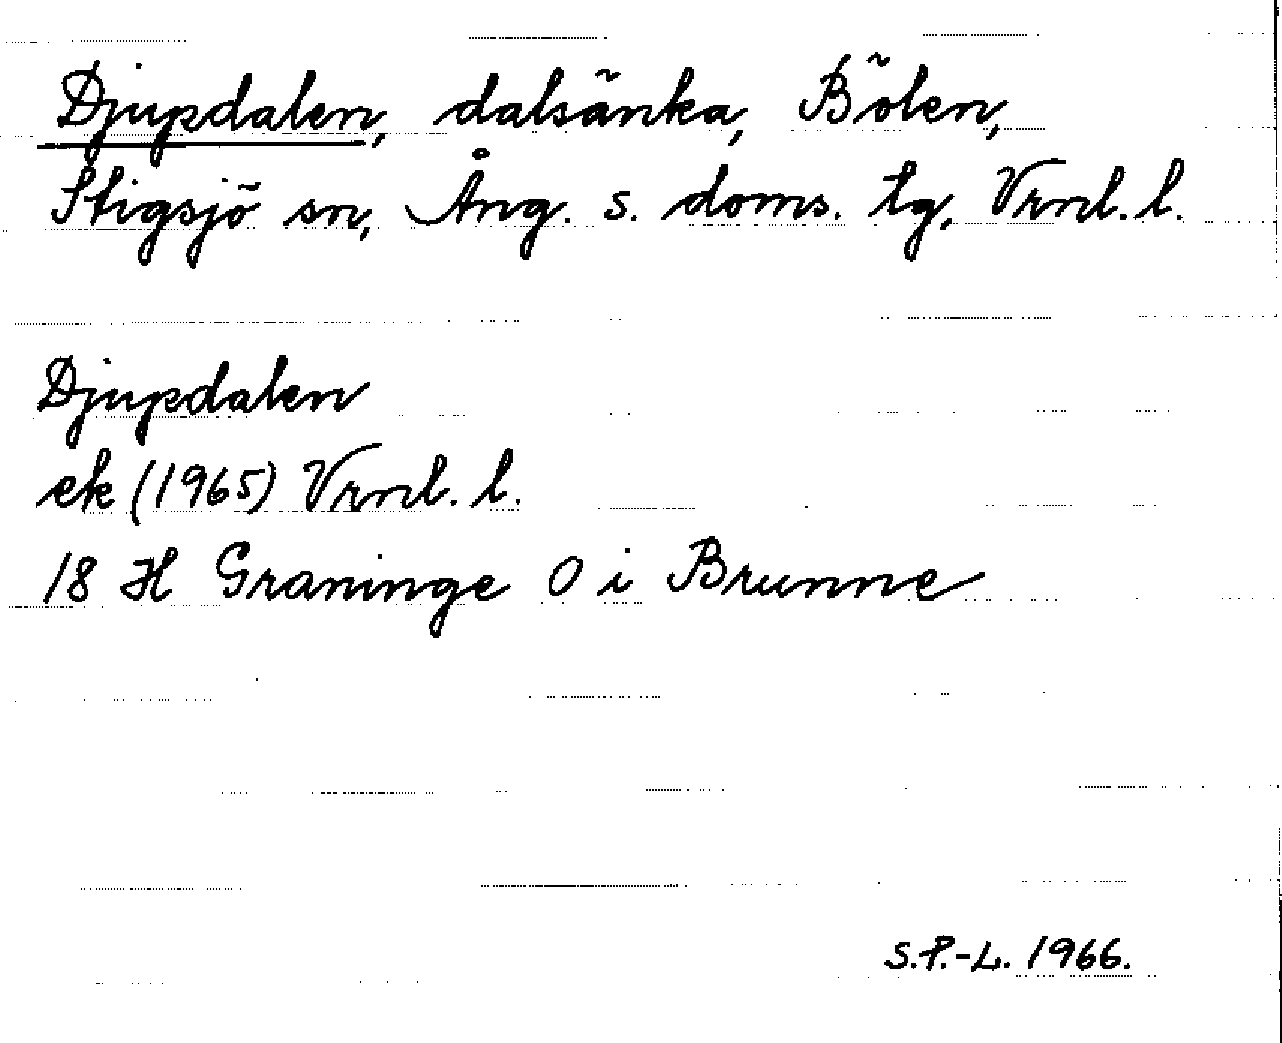 Djupdalen, dalsänka, Bölen,
Stigsjö sn, Ång. s. doms. tg, Vrnl. l.
Djupdalen
ek (1965) Vrnl. l.
18 H Graninge O i Brunne
S.P.-L. 1966.